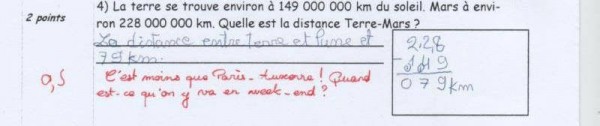 2 points
4) La terre se trouve environ à 149 000 000 km du soleil. Mars à envi-
ron 228 000 000 km. Quelle est la distance Terre-Mars ?
La distance entre Terre et Lune et
79 km.
0,5
C'est moins que Paris-Auxerre ! Quand
est-ce qu'on y va en week-end ?
228
-149
079 km